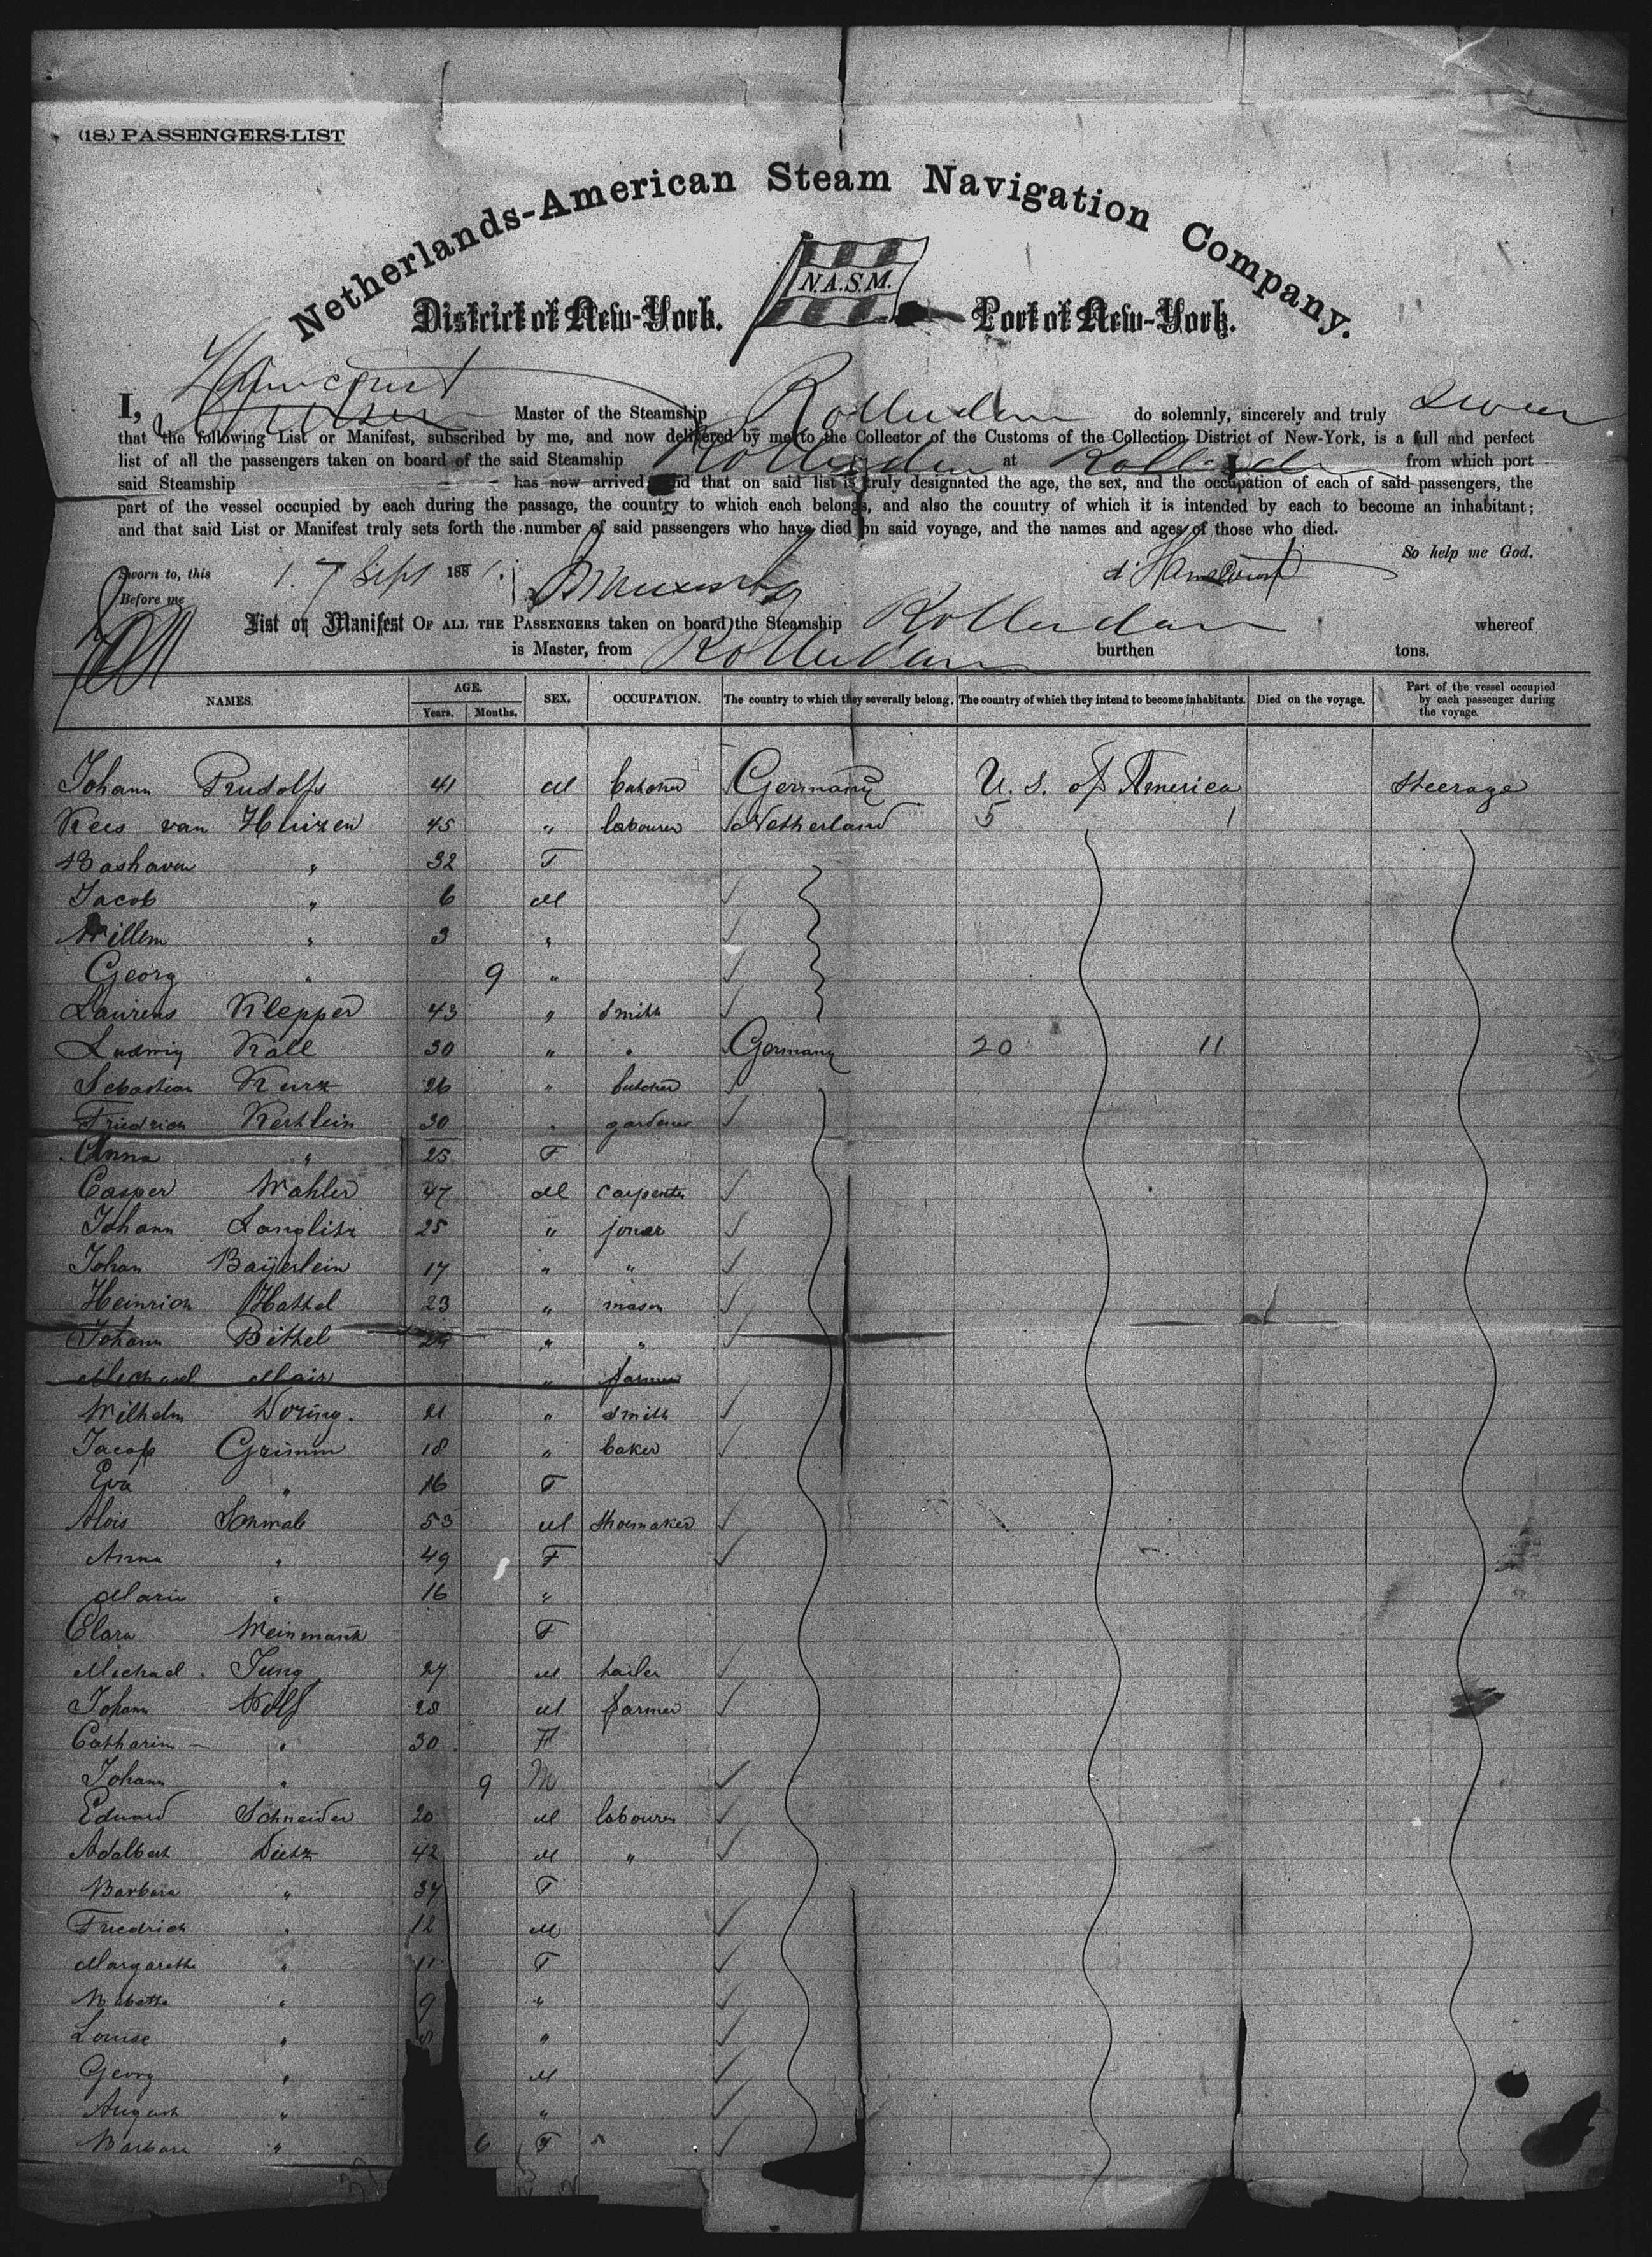 (18.) PASSENGERS-LIST
Netherlands-American Steam Navigation Company.
N.A.S.M.
District of New-York. Port of New-York.
I, Master of the Steamship Rotterdam do solemnly, sincerely and truly swear
that the following List or Manifest, subscribed by me, and now delivered by me to the Collector of the Customs of the Collection District of New-York, is a full and perfect
list of all the passengers taken on board of the said Steamship Rotterdam at Rotterdam from which port
said Steamship has now arrived and that on said list is truly designated the age, the sex, and the occupation of each of said passengers, the
part of the vessel occupied by each during the passage, the country to which each belongs, and also the country of which it is intended by each to become an inhabitant;
and that said List or Manifest truly sets forth the number of said passengers who have died on said voyage, and the names and ages of those who died.
So help me God.
Sworn to, this 17 Sept 1881.
Before me
List or Manifest OF ALL THE PASSENGERS taken on board the Steamship Rotterdam whereof
is Master, from Rotterdam burthen tons.
NAMES. AGE. Years. Months. SEX. OCCUPATION. The country to which they severally belong. The country of which they intend to become inhabitants. Died on the voyage. Part of the vessel occupied by each passenger during the voyage.
Johann Rudolfs 41 M butcher Germany U. S. of America Steerage
Kees van Huizen 45 " labourer Netherland 5 1
" 32 F
Jacob " 6 M
Willem " 3 "
Georg " 9 "
Laurens Klepper 43 " smith
Ludwig Kall 30 " " Germany 20 11
Sebastian Kurz 26 " butcher
Friedrich 30 " gardener
Anna " 25 F
Casper Wahler 47 M carpenter
Johann Langlitz 25 " joner
Johan Bayerlein 17 " "
Heinrich Hathel 23 " mason
Johann Bithel " "
Michael Mair " farmer
Wilhelm Döring. 21 " smith
Jacob Grimm 18 " baker
Eva " 16 F
Alois Schwab 53 M shoemaker
Anna " 49 F
Marie " 16 "
Clara F
Michael Jung 27 M tailer
Johann Wolf 28 M farmer
Catharina " 30 F
Johann " 9 M
Eduard Schneider 20 M labourer
Adalbert Dietz 42 M "
Barbara " 37 F
Friedrich " 12 M
Margarethe " 11 F
Babette " 9 "
Louise " "
Georg " M
August " "
Barbara " 6 F